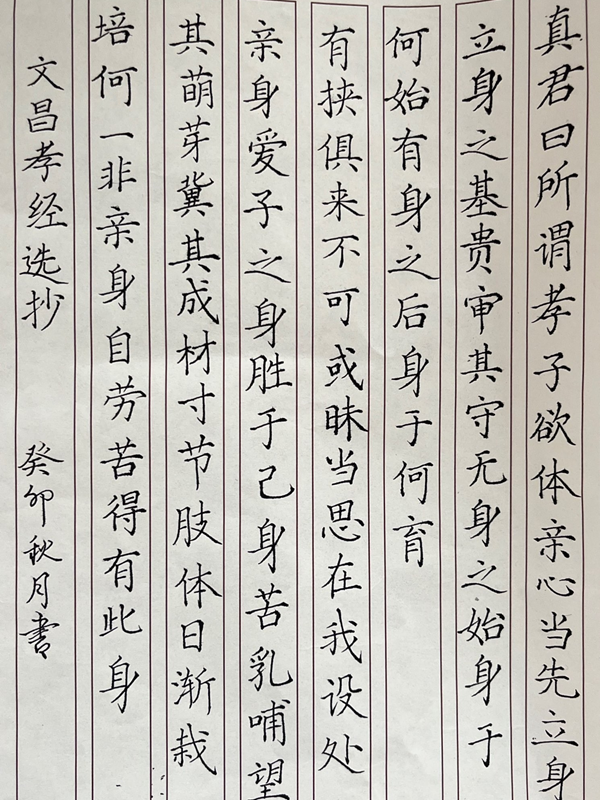 真君曰所谓孝子欲体亲心当先立身
立身之基贵审其守无身之始身于
何始有身之后身于何育
有挟俱来不可或昧当思在我设处
亲身爱子之身胜于己身苦乳哺望
其萌芽冀其成材寸节肢体日渐栽
培何一非亲身自劳苦得有此身
文昌孝经选抄 癸卯秋月书